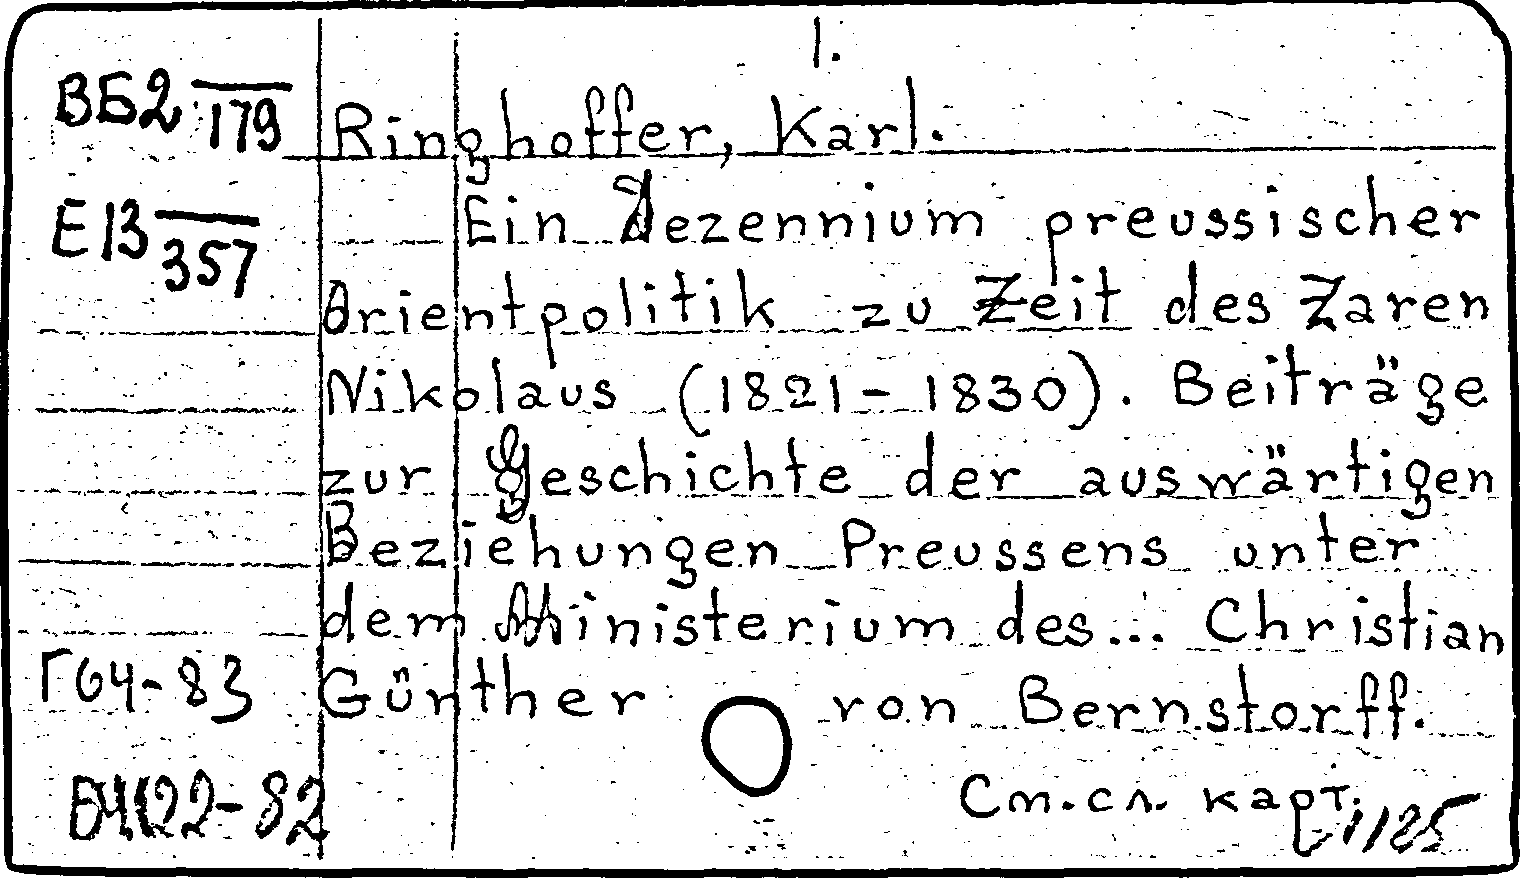 1.
ВБ2 179
Ringhoffer, Karl.
E13 357
Ein Dezennium preussischer
Orientpolitik zu Zeit des Zaren
Nikolaus (1821-1830). Beiträge
zur Geschichte der auswärtigen
Beziehungen Preussens unter
dem Ministerium des... Christian
Г64-83
Günther von Bernstorff.
См.сл. карт.